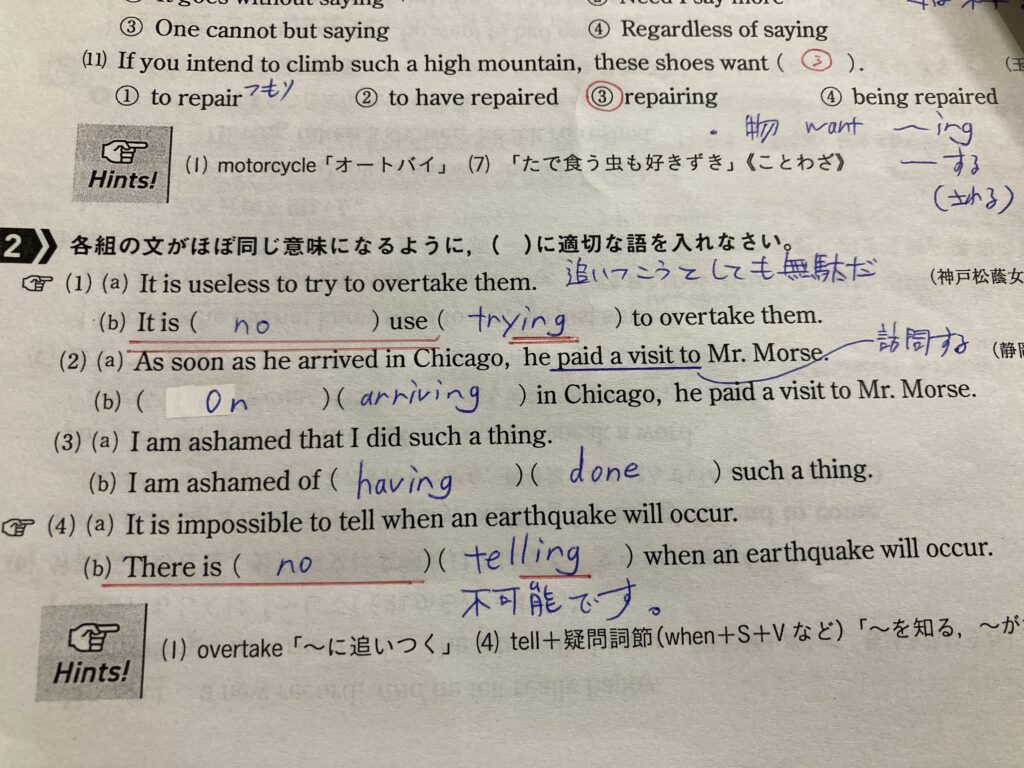 It goes without saying
Need I say more
③ One cannot but saying ④ Regardless of saying
(11) If you intend to climb such a high mountain, these shoes want ( ③ ).
① to repair つもり ② to have repaired ③ repairing ④ being repaired
・物 want ～ing
―する
(される)
Hints!
(1) motorcycle「オートバイ」 (7) 「たで食う虫も好きずき」《ことわざ》
2 各組の文がほぼ同じ意味になるように, ( )に適切な語を入れなさい。
(1) (a) It is useless to try to overtake them. 追いつこうとしても無駄だ (神戸松蔭女
(b) It is ( no ) use ( trying ) to overtake them.
(2) (a) As soon as he arrived in Chicago, he paid a visit to Mr. Morse. 訪問する (静岡
(b) ( On )( arriving ) in Chicago, he paid a visit to Mr. Morse.
(3) (a) I am ashamed that I did such a thing.
(b) I am ashamed of ( having )( done ) such a thing.
(4) (a) It is impossible to tell when an earthquake will occur.
(b) There is ( no )( telling ) when an earthquake will occur.
不可能です。
Hints!
(1) overtake「～に追いつく」 (4) tell＋疑問詞節(when＋S＋Vなど)「～を知る, ～が